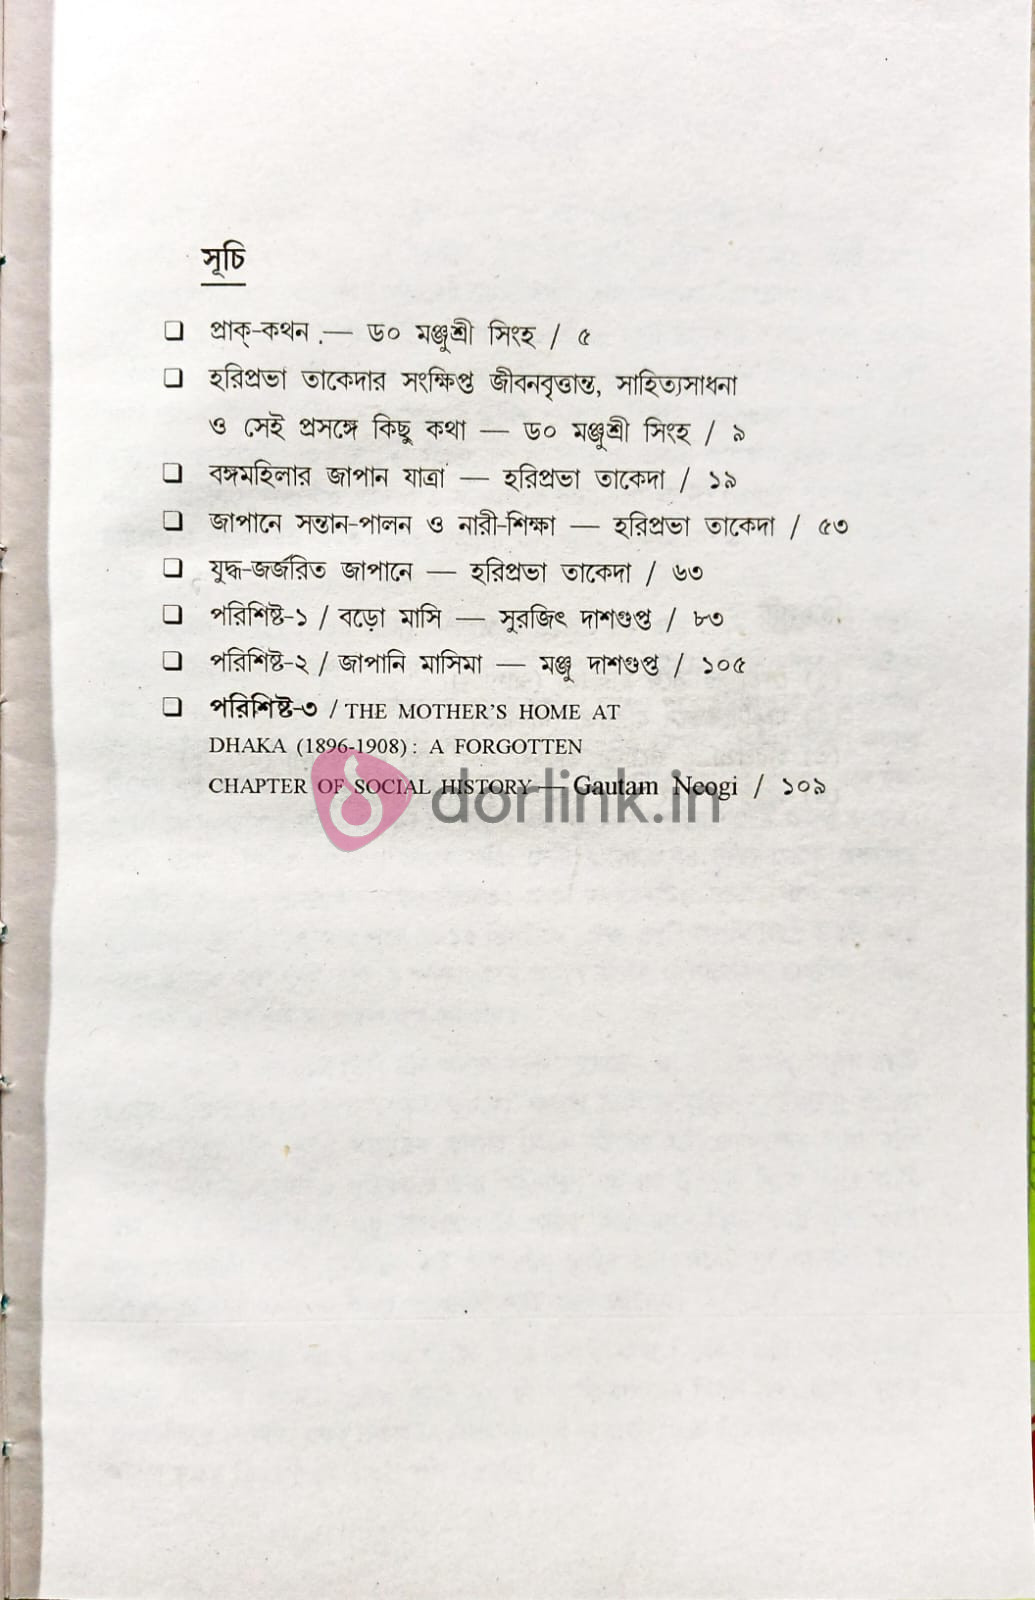 সূচি
❑ প্রাক্-কথন .— ড০ মঞ্জুশ্রী সিংহ / ৫
❑ হরিপ্রভা তাকেদার সংক্ষিপ্ত জীবনবৃত্তান্ত, সাহিত্যসাধনা
ও সেই প্রসঙ্গে কিছু কথা — ড০ মঞ্জুশ্রী সিংহ / ৯
❑ বঙ্গমহিলার জাপান যাত্রা — হরিপ্রভা তাকেদা / ১৯
❑ জাপানে সন্তান-পালন ও নারী-শিক্ষা — হরিপ্রভা তাকেদা / ৫৩
❑ যুদ্ধ-জর্জরিত জাপানে — হরিপ্রভা তাকেদা / ৬৩
❑ পরিশিষ্ট-১ / বড়ো মাসি — সুরজিৎ দাশগুপ্ত / ৮৩
❑ পরিশিষ্ট-২ / জাপানি মাসিমা — মঞ্জু দাশগুপ্ত / ১০৫
❑ পরিশিষ্ট-৩ / THE MOTHER'S HOME AT
DHAKA (1896-1908): A FORGOTTEN
CHAPTER OF SOCIAL HISTORY — Gautam Neogi / ১০৯
dorlink.in